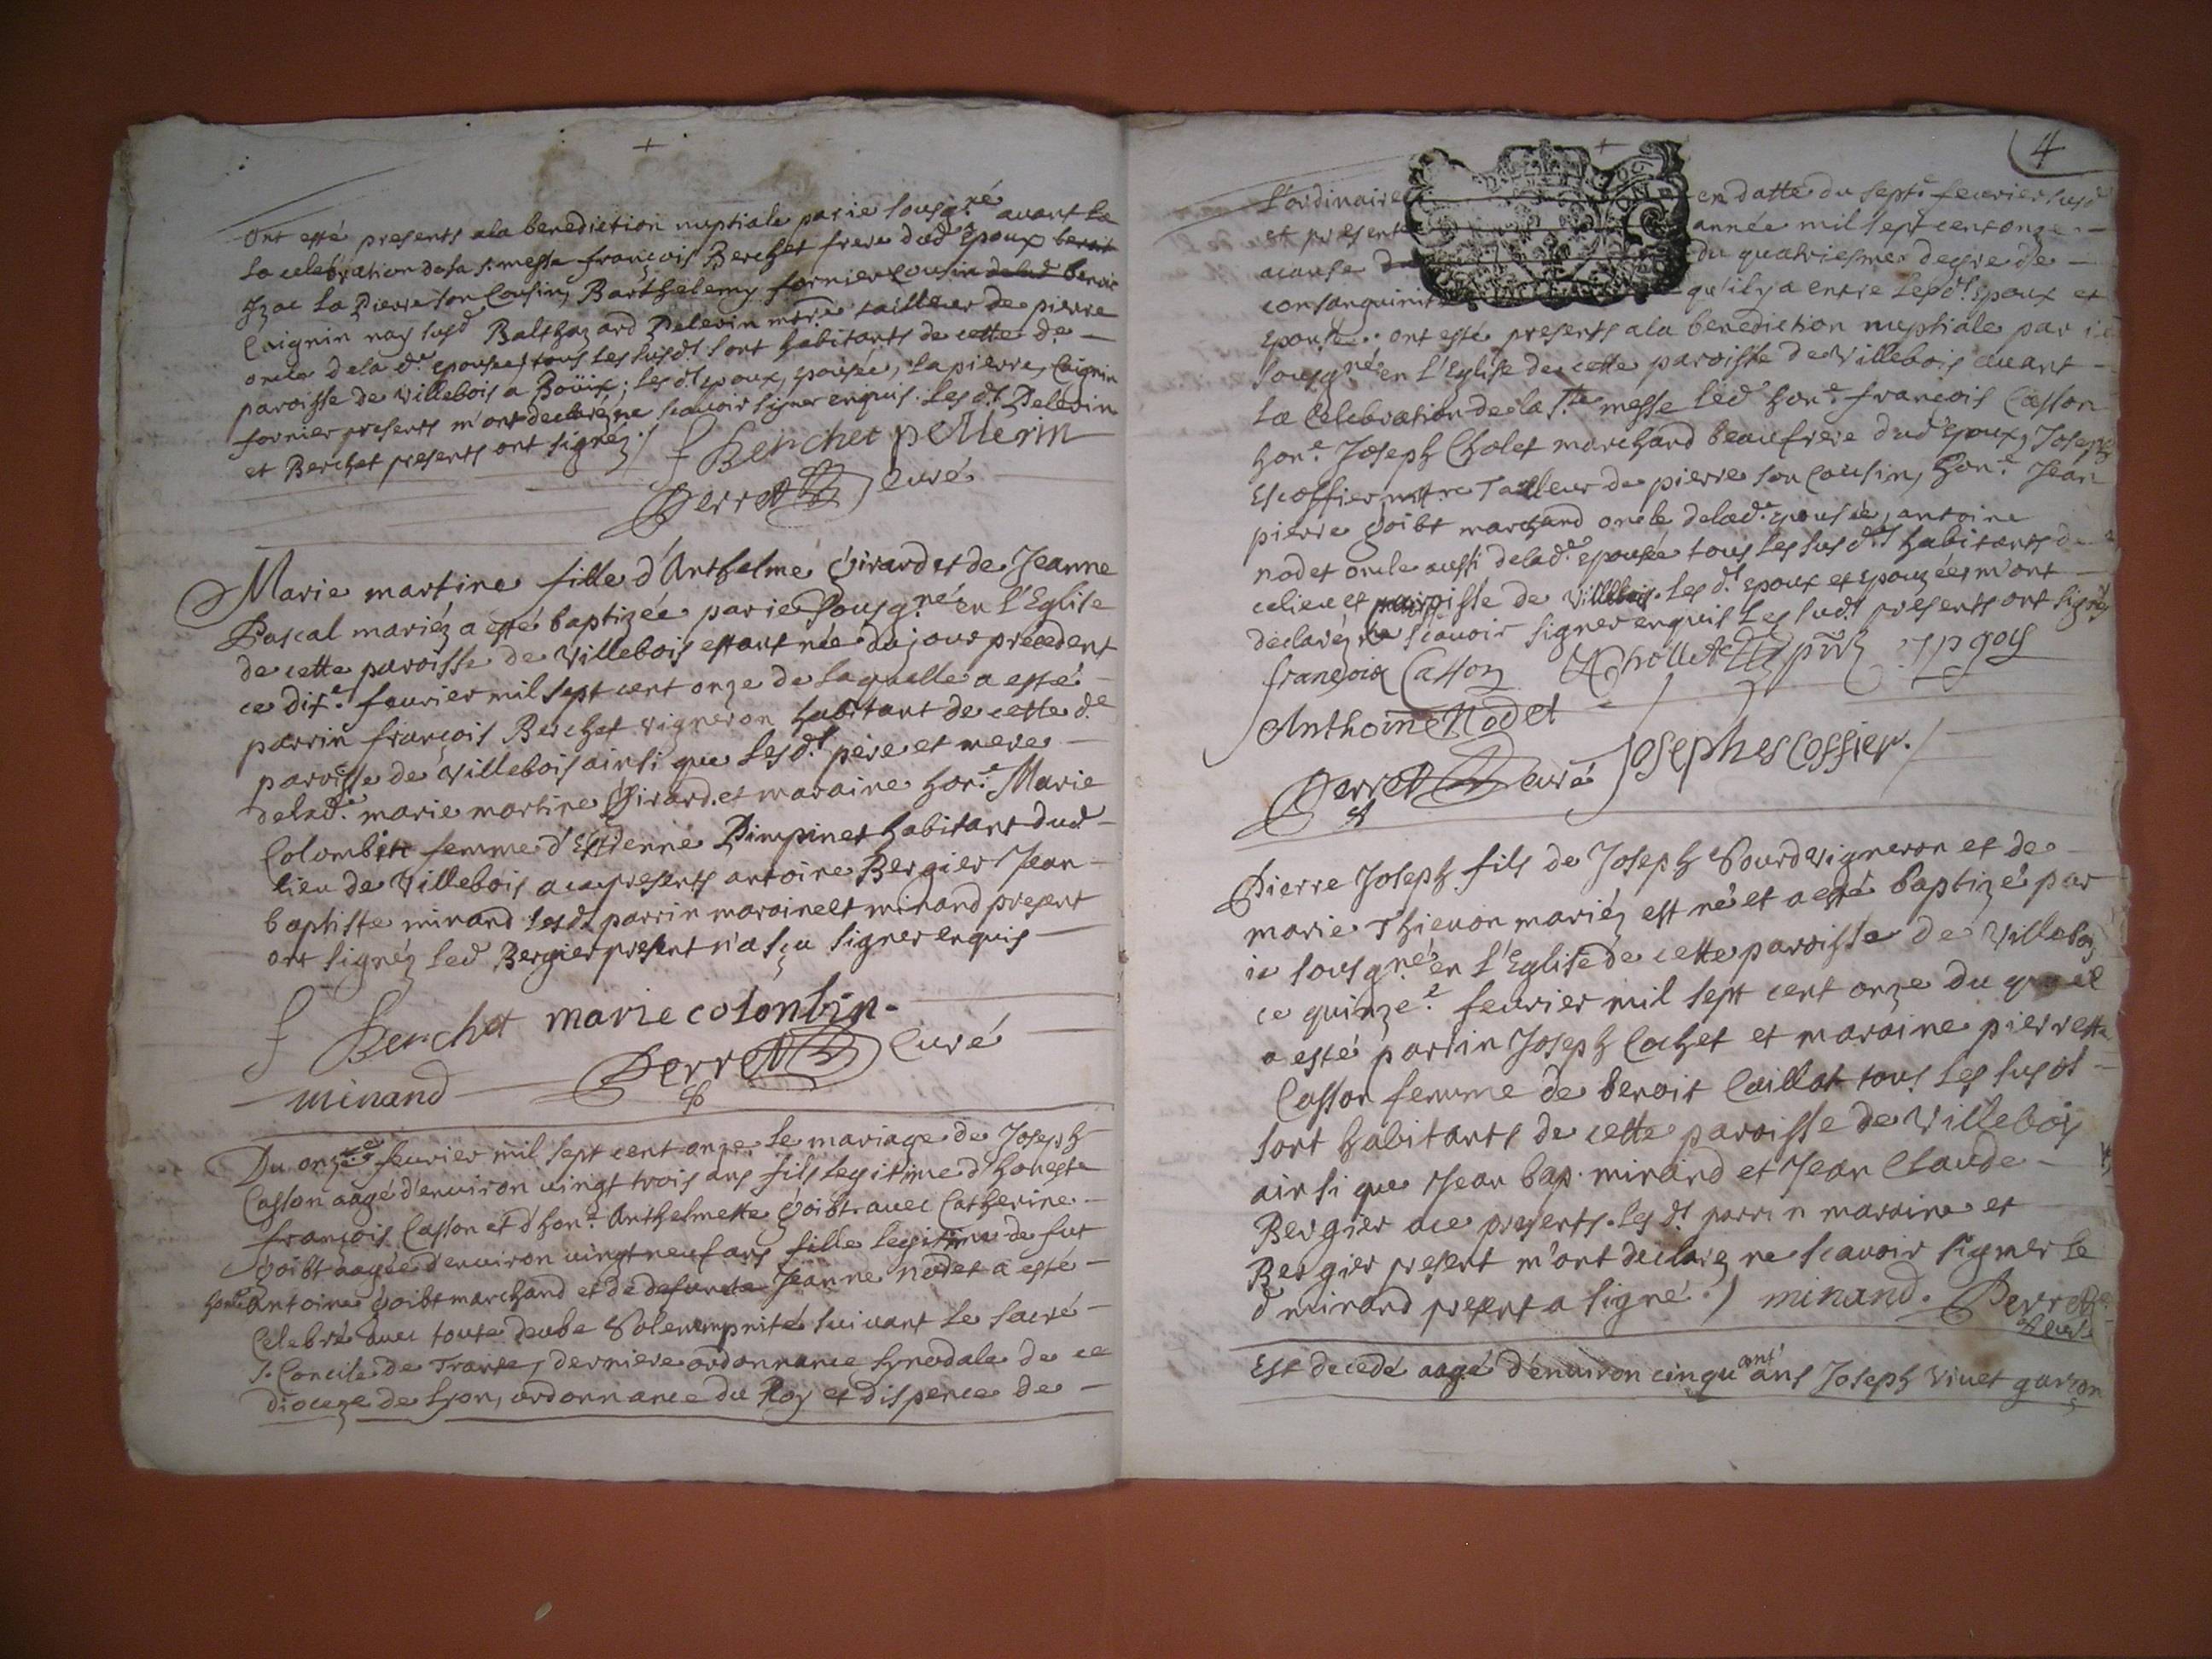 ont esté presents ala benediction nuptiale par ie sousg.né auant la
la celebration de la s. messe françois Berchet frere dud epoux
Izac la Pierre son Cousin, Barthelemy fornier cousin
Caignin nay susd Balthazard Pelerin m.re tailleur de pierre
oncle dela d.e epousée, tous les susd.ts sont habitants de cette d.e
paroisse de Villebois a Boüix; les d.ts epoux, epousée, lapierre, Caignin
fornier presents m'ont declaréz ne scauoir signer enquis. les d.ts Pelerin
et Berchet presents ont signéz. f Berchet pellerin
Perret curé
Marie martine fille d'Anthelme Girard et de Jeanne
Pascal mariéz a esté baptizée par ie sousg.né en l'Eglise
de cette paroisse de Villebois estant née du jour precedent
ce dix.e feurier mil sept cent onze de laquelle a esté
parrin françois Berchet vigneron habitant de cette d.e
paroisse de Villebois ainsi que lesd.ts père et mere
delad.e marie martine Girard. et maraine hon.e Marie
Colombin femme d'Estienne Pimpinet habitant dud
lieu de Villebois a ce presents antoine Bergier Jean
baptiste minand lesd.ts parrin maraine et minand present
ont signéz led Bergier present n'a sçu signer enquis
f Berchet marie colonbin.
minand Perret Curé
Du onze.e feurier mil sept cent onze le mariage de Joseph
Casson aagé d'enuiron uingt trois ans fils legitime d'honeste
françois Casson et d'hon.e Anthelmette Goibt auec Catherine
Goibt aagée d'enuiron uingt neuf ans fille legitime de fut
hon.e Antoine Goibt marchand et de defunte Jeanne nodet a esté
Celebré auec toute deube Solemmpnité suiuant le sacré
s. Concile de Trante, derniere ordonnance synodale de ce
dioceze de Lyon, ordonnance du Roy et dispence de
4
l'ordinaire en datte du sept.e feurier susd
et presente année mil sept cent onze
acause du quatriesme degre de
consanguinit qu'il y a entre lesd.ts epoux et
epouse. ont esté presents ala benediction nuptiale par ie
sousg.né en l'Eglise de cette paroisse de Villebois auant
la Celebration de la s.te messe led hon.e françois Casson
hon.e Joseph Cholet marchand beaufrere dud epoux, Joseph
Escoffier m.re Tailleur de pierre son Cousin, hon.e Jean
pierre Goibt marchand oncle delad.e epousée, antoine
nodet oncle aussi delad.e epousée tous les susd.ts habitants de
ce lieu et paroisse de Villebois. les d.ts epoux et epouzées m'ont
declaréz ne scauoir signer enquis les susd.ts presents ont signéz
françois Casson Chollet Jp goy
Anthoine Nodet
Perret curé Joseph escoffier.
Pierre Joseph fils de Joseph Sourd vigneron et de
marie Thieuon mariéz est né et a esté baptizé par
ie sousg.né en l'Eglise de cette paroisse de Villebois
ce quinze.e feurier mil sept cent onze du quel
a esté parrin Joseph Cochet et maraine pierrette
Casson femme de benoit Caillat tous les susd.ts
sont habitants de cette paroisse de Villebois
ainsi que Jean bap. minand et Jean Claude
Bergier a ce presents. les d.ts parrin maraine et
Bergier present m'ont declarez ne scauoir signer le
d minand present a signé. minand. Perret
curé
Est decedé aagé d'enuiron cinquant ans Joseph Viuet garçon